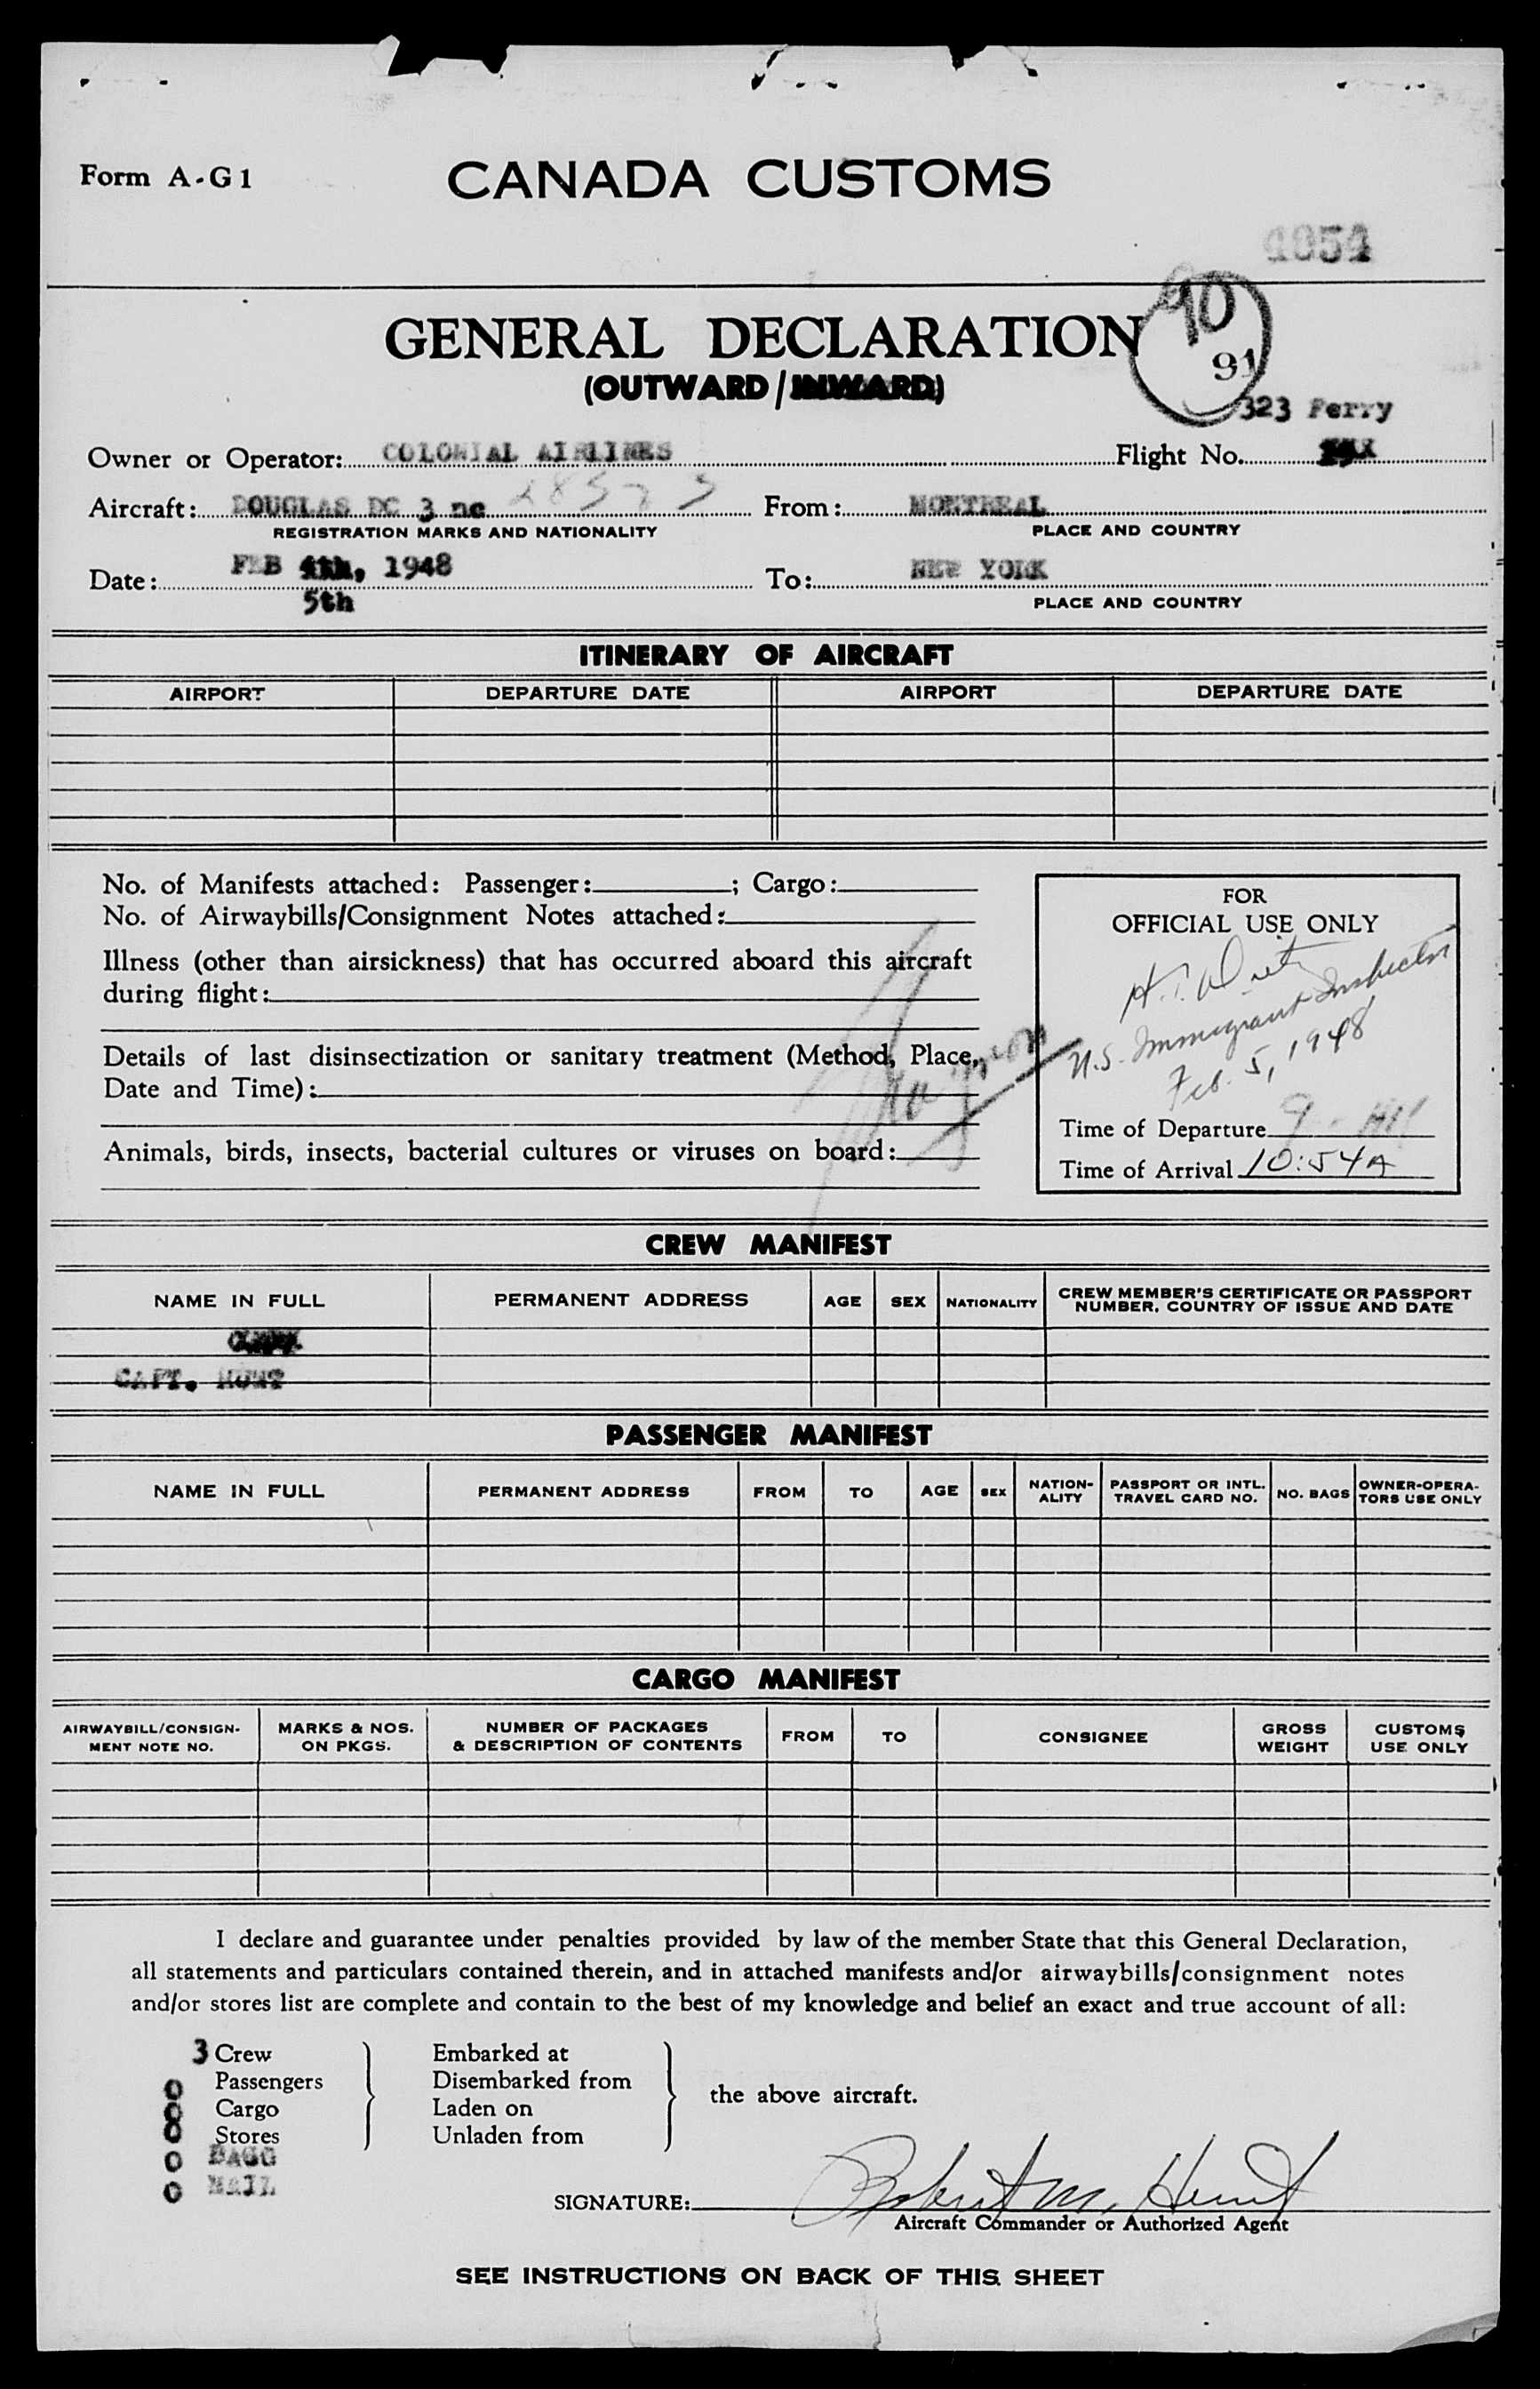 Form A-G1
CANADA CUSTOMS
4054
90
91
GENERAL DECLARATION
(OUTWARD/INWARD)
323 Ferry
Owner or Operator: COLONIAL AIRLINES Flight No.
Aircraft: DOUGLAS DC 3 nc 28373 From: MONTREAL
REGISTRATION MARKS AND NATIONALITY PLACE AND COUNTRY
Date: FEB 4th, 1948 To: NEW YORK
5th PLACE AND COUNTRY
ITINERARY OF AIRCRAFT
AIRPORT DEPARTURE DATE AIRPORT DEPARTURE DATE
No. of Manifests attached: Passenger: ; Cargo:
No. of Airwaybills/Consignment Notes attached:
Illness (other than airsickness) that has occurred aboard this aircraft
during flight:
Details of last disinsectization or sanitary treatment (Method, Place,
Date and Time):
Animals, birds, insects, bacterial cultures or viruses on board:
FOR
OFFICIAL USE ONLY
U.S. Immigrant Inspector
Feb. 5, 1948
Time of Departure 9
Time of Arrival 10:54A
CREW MANIFEST
NAME IN FULL PERMANENT ADDRESS AGE SEX NATIONALITY CREW MEMBER'S CERTIFICATE OR PASSPORT
NUMBER, COUNTRY OF ISSUE AND DATE
CAPT. HUNT
PASSENGER MANIFEST
NAME IN FULL PERMANENT ADDRESS FROM TO AGE SEX NATION-
ALITY PASSPORT OR INTL.
TRAVEL CARD NO. NO. BAGS OWNER-OPERA-
TORS USE ONLY
CARGO MANIFEST
AIRWAYBILL/CONSIGN-
MENT NOTE NO. MARKS & NOS.
ON PKGS. NUMBER OF PACKAGES
& DESCRIPTION OF CONTENTS FROM TO CONSIGNEE GROSS
WEIGHT CUSTOMS
USE ONLY
I declare and guarantee under penalties provided by law of the member State that this General Declaration,
all statements and particulars contained therein, and in attached manifests and/or airwaybills/consignment notes
and/or stores list are complete and contain to the best of my knowledge and belief an exact and true account of all:
3 Crew Embarked at
0 Passengers Disembarked from
the above aircraft.
0 Cargo Laden on
0 Stores Unladen from
0 BAGG
0 MAIL
SIGNATURE: Robert M. Hunt
Aircraft Commander or Authorized Agent
SEE INSTRUCTIONS ON BACK OF THIS SHEET